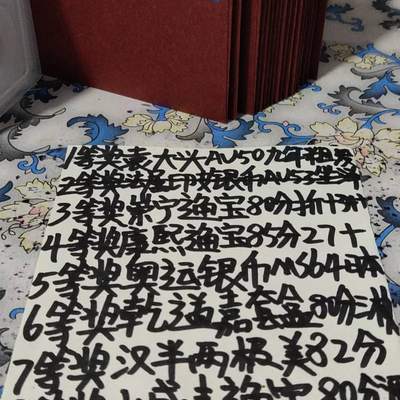 1等奖袁大头AU50九年粗发
2等奖法属印授银币AU53坐洋
3等奖崇宁通宝80分折十
4等奖康熙通宝85分27+
5等奖奥运银币MS64
6等奖乾道嘉套盒80分
7等奖汉半两极美82分
通宝80分